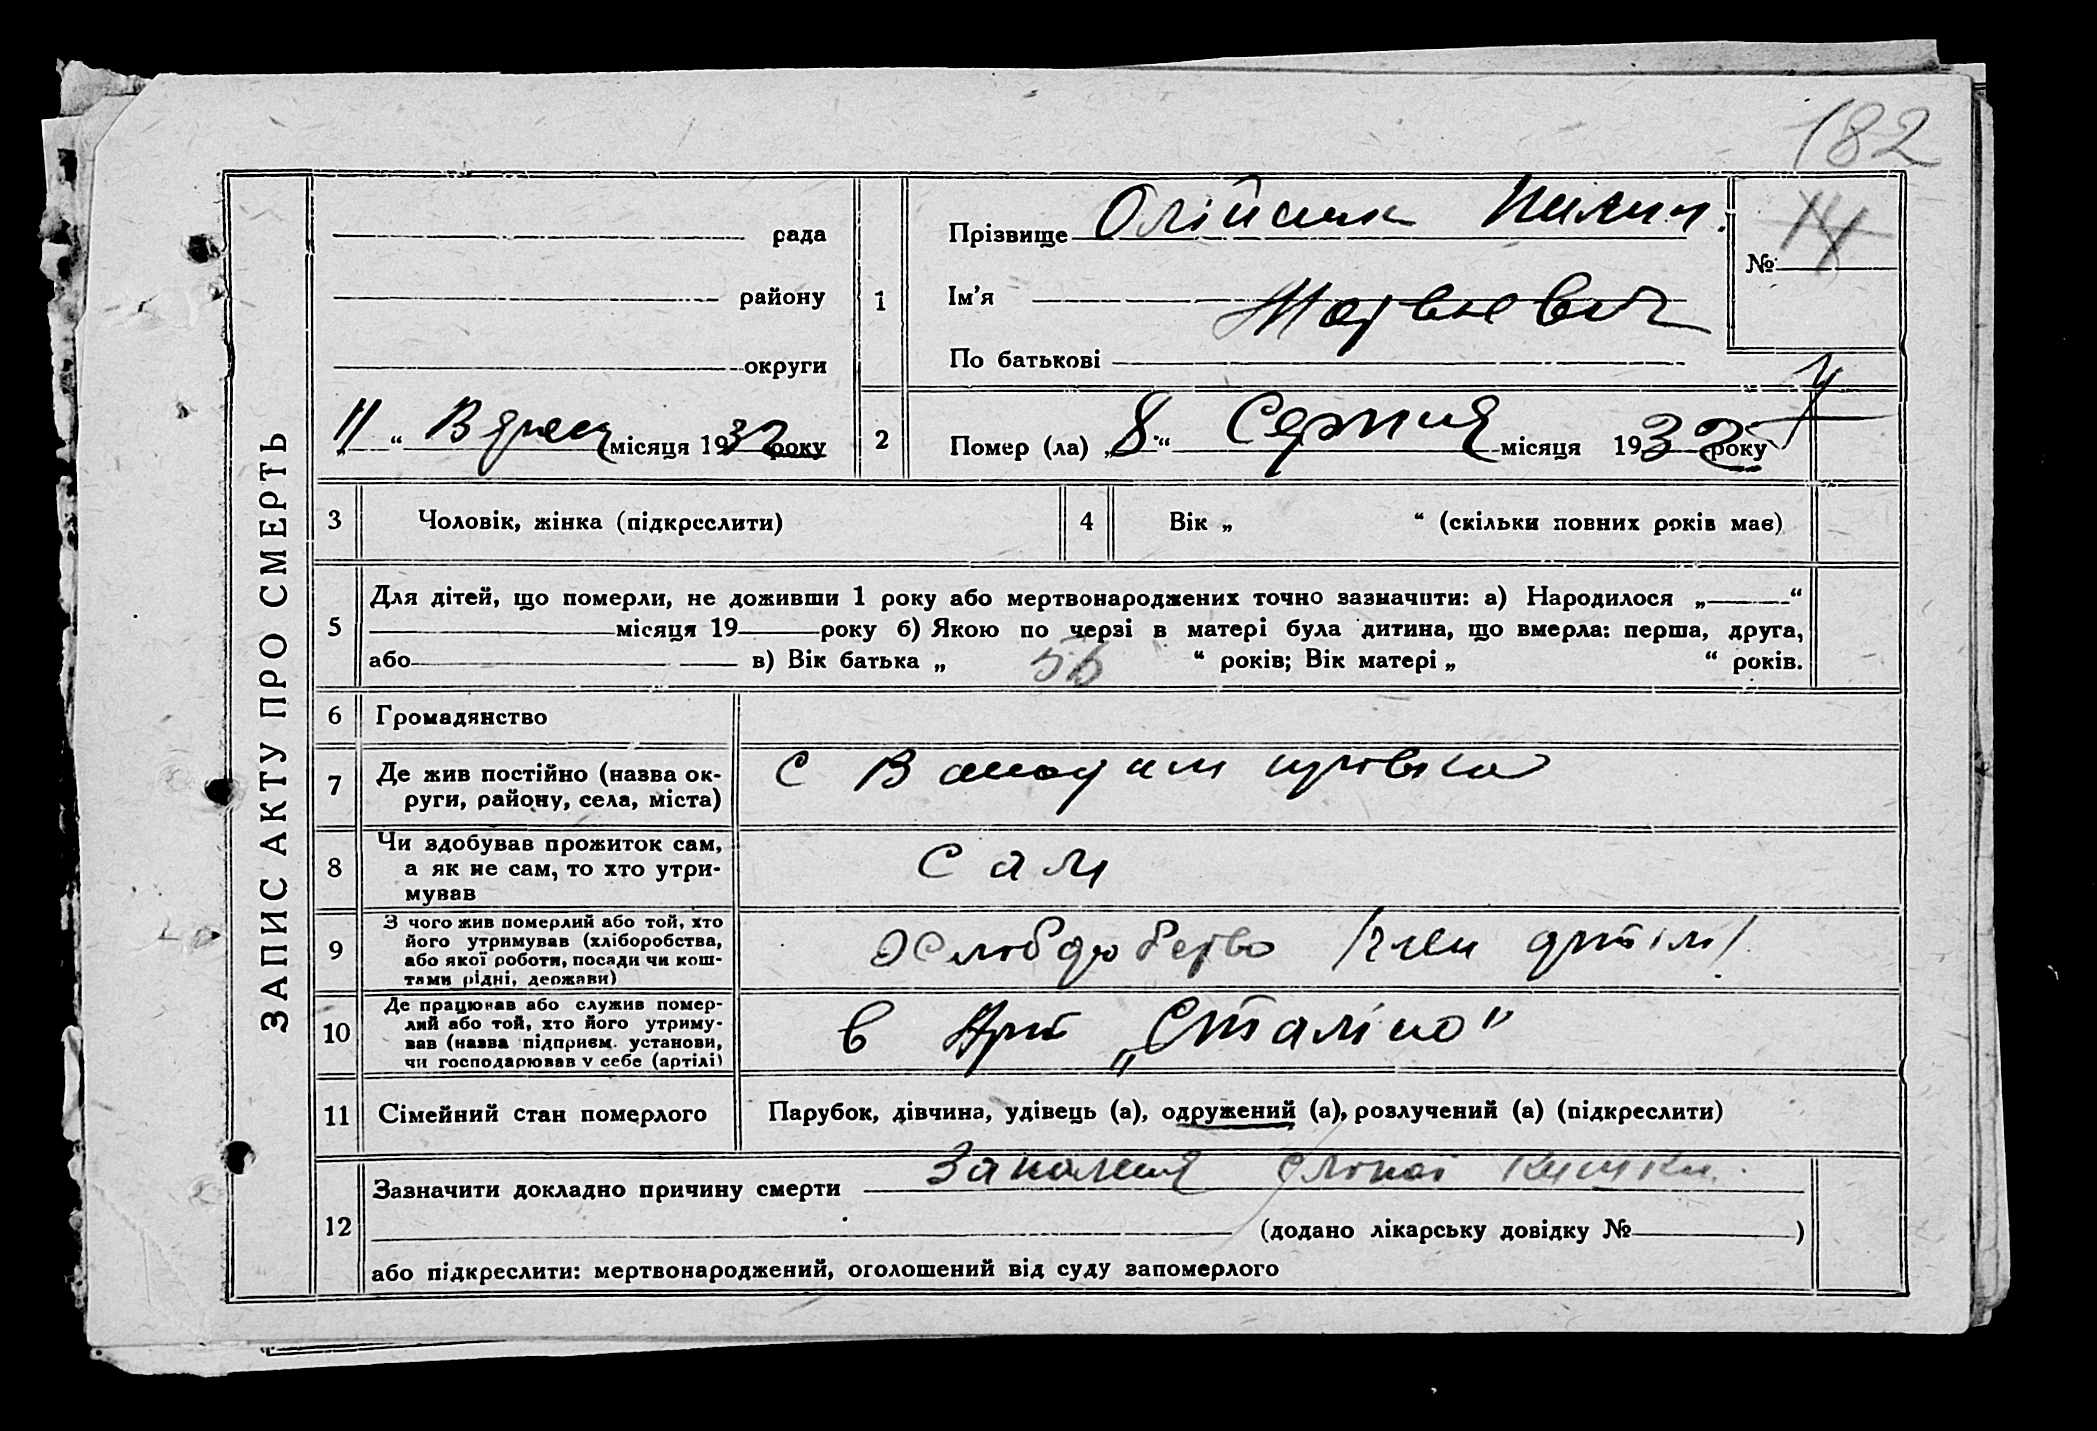 182
ЗАПИС АКТУ ПРО СМЕРТЬ
рада
району
округи
11 “ Вересня місяця 1932 року
1
Прізвище Олійник Пилип
Ім’я Матвієвич
По батькові
№ 14
2
Помер (ла) „8“ Серпня місяця 1932 року
3
Чоловік, жінка (підкреслити)
4
Вік „ “ (скільки повних років має)
5
Для дітей, що померли, не доживши 1 року або мертвонароджених точно зазначити: а) Народилося „ “
місяця 19 року б) Якою по черзі в матері була дитина, що вмерла: перша, друга,
або в) Вік батька „ “ років; Вік матері „ “ років.
6
Громадянство
7
Де жив постійно (назва округи, району, села, міста)
с
8
Чи здобував прожиток сам,
а як не сам, то хто утри-
мував
Сам
9
З чого жив померлий або той, хто
його утримував (хліборобства,
або якої роботи, посади чи кош-
тами рідні, держави)
/член артілі/
10
Де працював або служив помер-
лий або той, хто його утриму-
вав (назва підприєм. установи,
чи господарював у себе (артілі)
в Арт „Сталіно”
11
Сімейний стан померлого
Парубок, дівчина, удівець (а), одружений (а), розлучений (а) (підкреслити)
12
Зазначити докладно причину смерти Запалення сліпої кишки.
(додано лікарську довідку № )
або підкреслити: мертвонароджений, оголошений від суду запомерлого